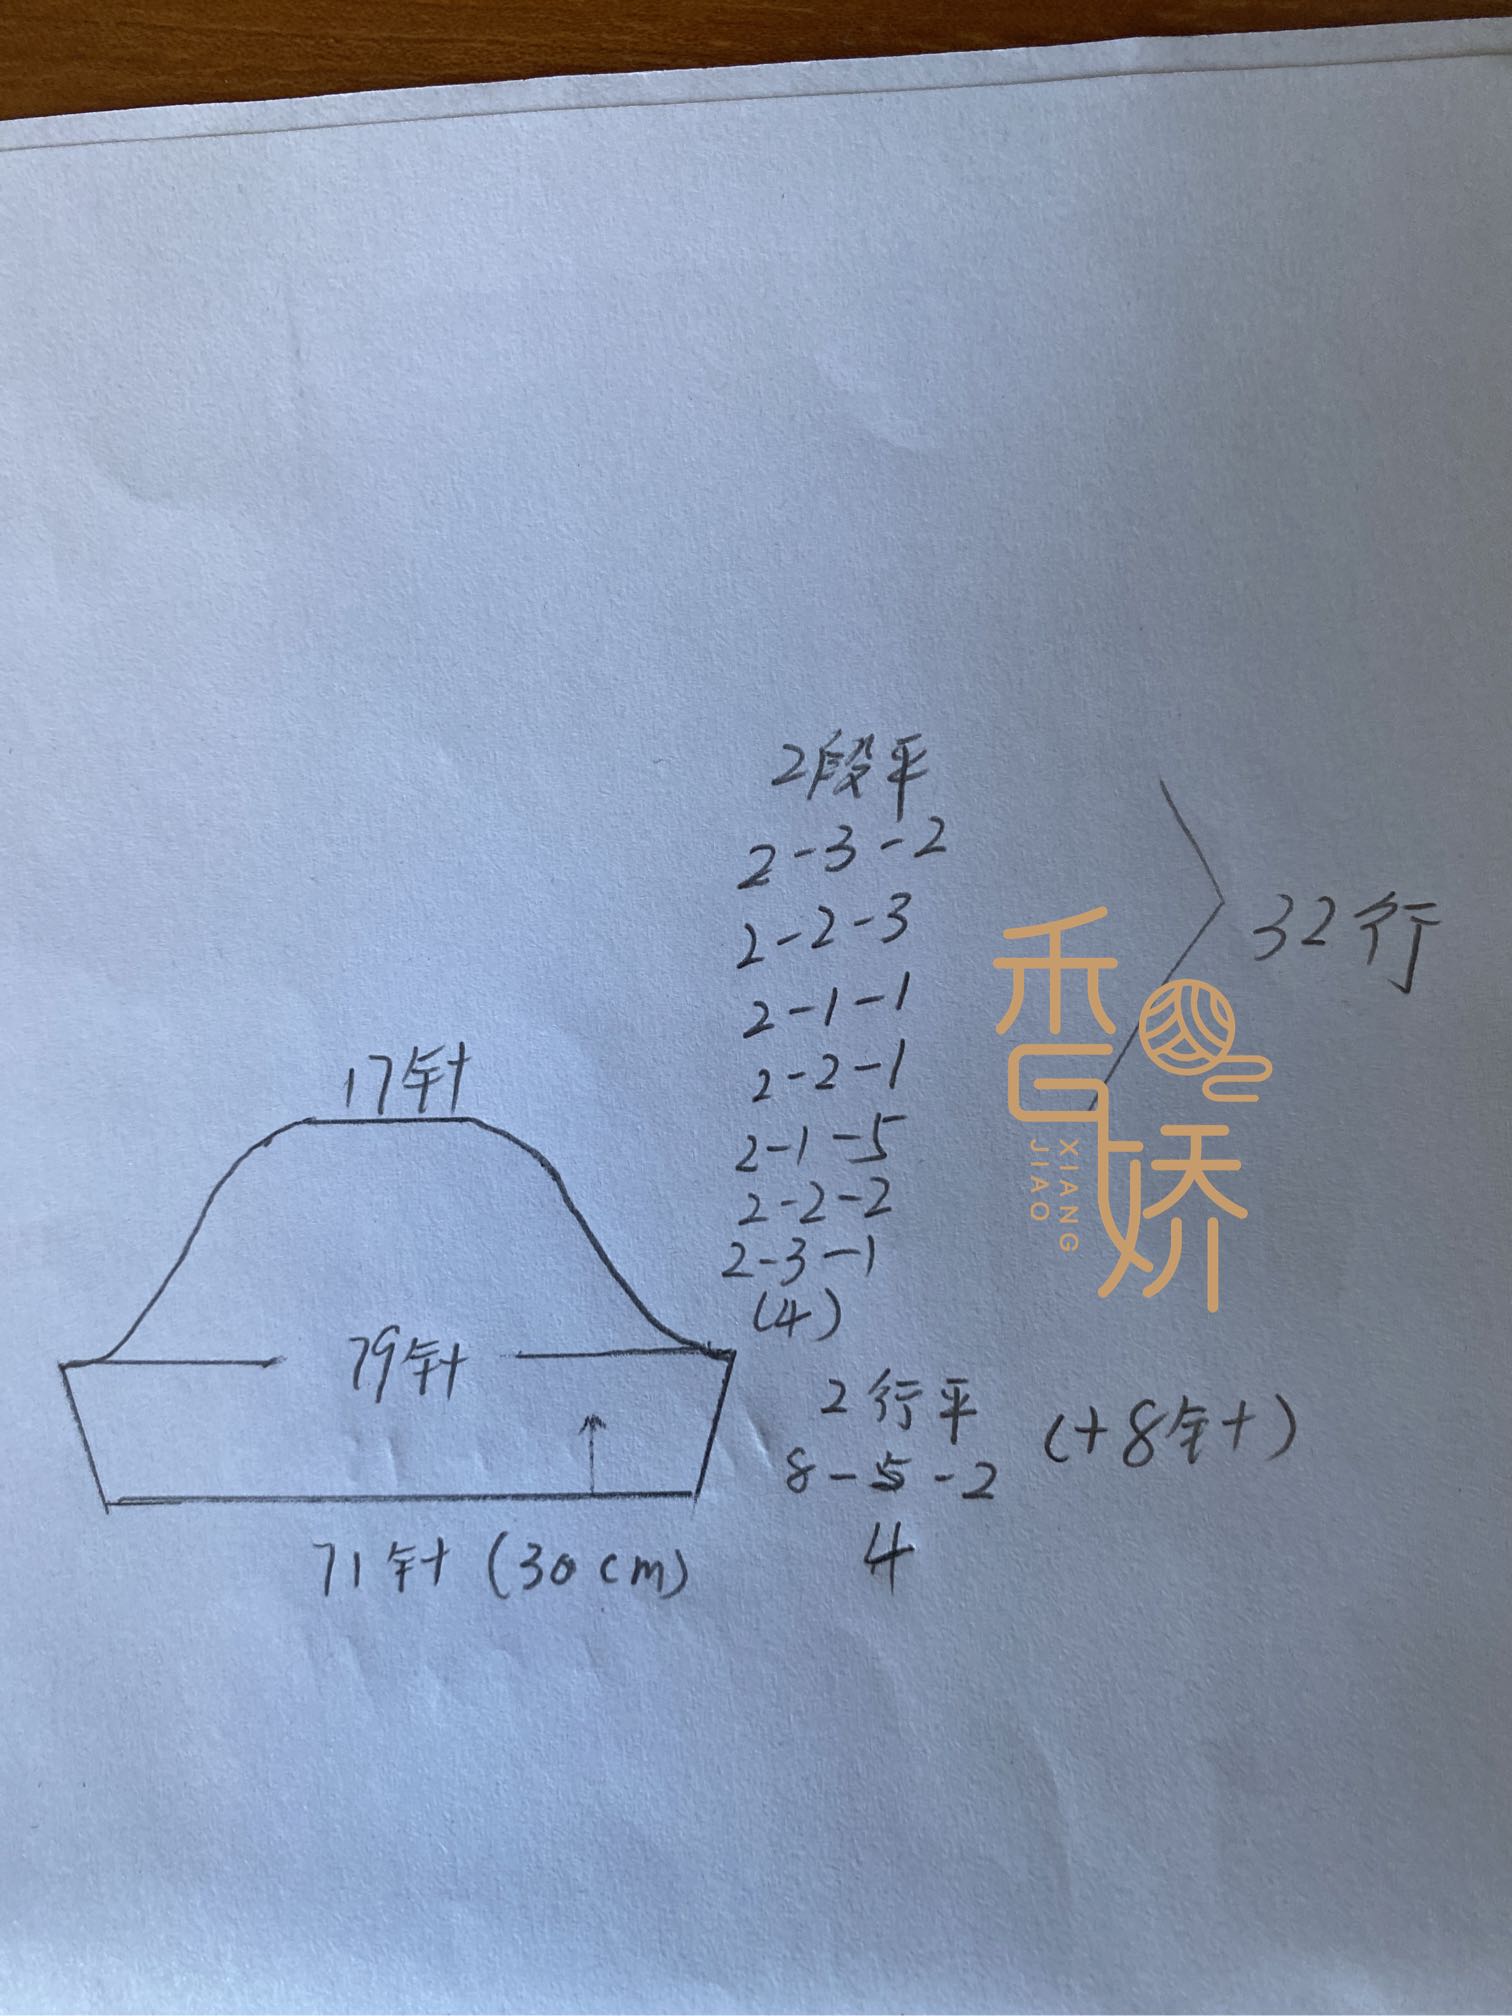 2段平
2-3-2
2-2-3
2-1-1
2-2-1
2-1-5
2-2-2
2-3-1
(4)
32行
香娇
XIANG
JIAO
17针
79针
2行平 (+8针)
8-5-2
4
71针 (30cm)